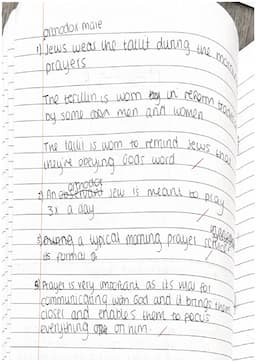 orthodox male
1) Jews wear the tallit during the
prayers
The tefillin is worn in reform
by some men and women
The tallit is worn to remind Jews that
they're obeying Gods word
orthodox
2) An Jew is meant to pray
3x a day
3) a typical morning prayer
is formal
Prayer is very important as its vital for
communicating with God and it brings them
closer and enables them to focus
everything on him